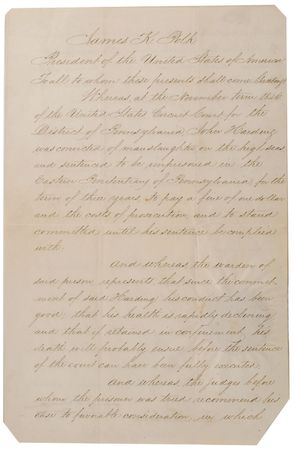 James K Polk
President of the United States of America
To all to whom these presents shall come Greeting
Whereas, at the November term
of the United States Circuit Court for the
District of Pennsylvania John Harding
was convicted of manslaughter on the high seas
and sentenced to be imprisoned in the
Eastern Penitentiary of Pennsylvania for the
term of three years, to pay a fine of one dollar
and the costs of prosecution and to stand
committed until his sentence be complied
with.
And whereas the warden of
said prison represents that since the commit-
ment of said Harding his conduct has been
good; that his health is rapidly declining
and that if retained in confinement, his
death will probably ensue before the sentence
of the court can have been fully executed.
And whereas the judges before
whom the prisoner was tried, recommend his
case to favorable consideration, which